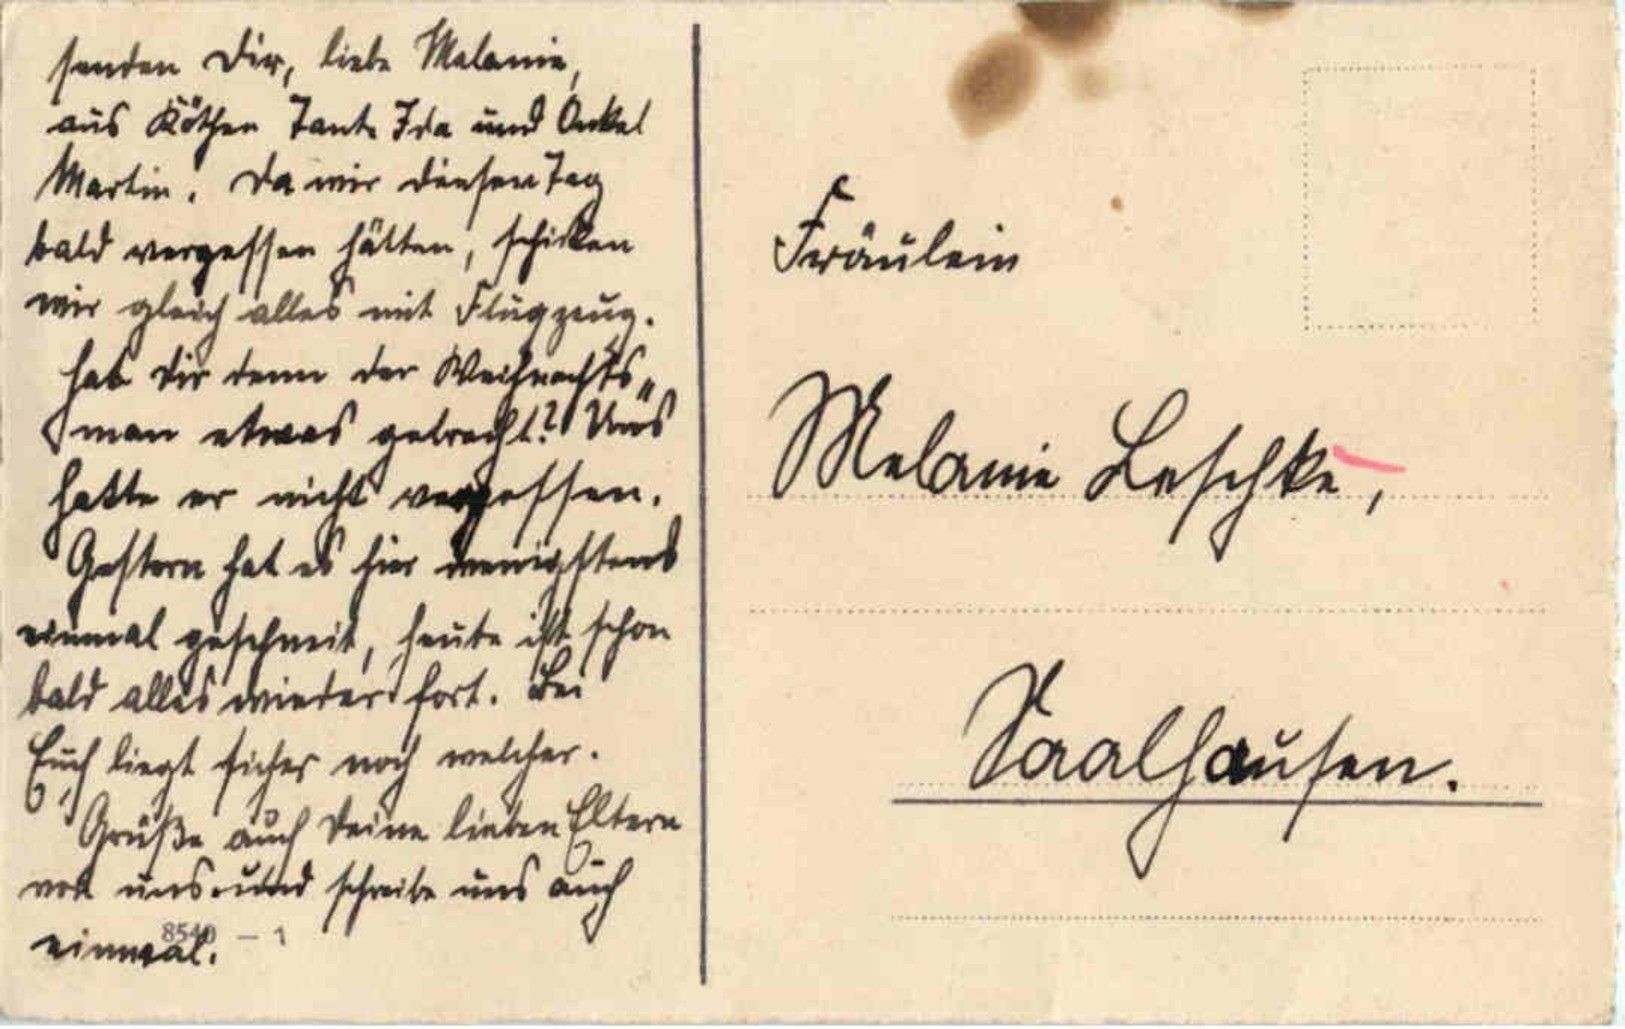 senden Dir, liebe Melanie,
aus Köthen Tante Ida und Onkel
Martin. Da wir diesen Tag
bald vergessen hätten, schicken
wir gleich alles mit Flugzeug.
Hat Dir denn der Weihnachts„
man etwas gebracht? Uns
hatte er nicht vergessen.
Gestern hat es hier wenigstens
einmal geschneit, heute ist schon
bald alles wieder fort. Bei
Euch liegt sicher noch welcher.
Grüße auch Deine lieben Eltern
von uns und schreibe uns auch
einmal.
8540 – 1
Fräulein
Melanie Leschke,
Saalhausen.